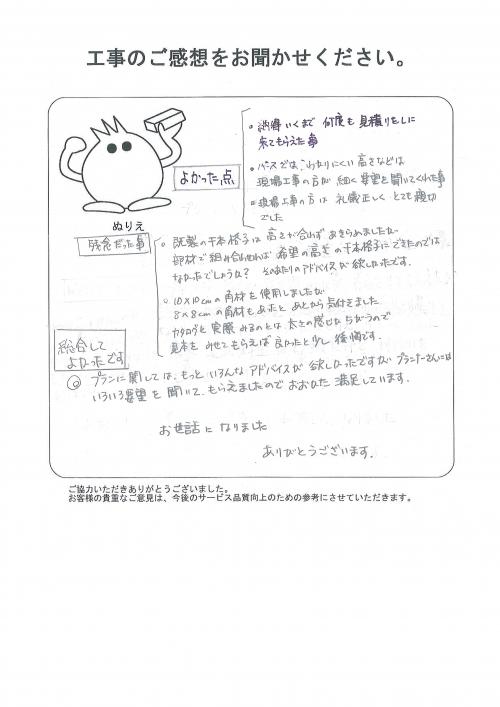 工事のご感想をお聞かせください。
ぬりえ
よかった点
• 納得いくまで 何度も 見積りをしに
来てもらえた事
• パースでは、わかりにくい高さなどは
現場工事の方が 細く要望を聞いてくれた事
• 現場工事の方は 礼儀正しく とても親切
でした
残念だった事
• 既製の千本格子は高さが合わず あきらめましたが
部材で組み合わせれば 希望の高さの千本格子にできたのでは
なかったでしょうか? そのあたりのアドバイスが欲しかったです。
○ 10×10cmの角材を使用しましたが
8×8cmの角材もあったと あとから気付きました
カタログと 実際みるのとは 太さの感じが ちがうので
見本を みせてもらえば 良かったと少し 後悔です。
総合して
よかったです
◎ プランに関しては、もっと いろんな アドバイスが 欲しかったですが プランナーさんには
いろいろ要望を 聞いて、もらえましたので おおむね 満足しています。
お世話に なりました
ありがとうございます。
ご協力いただきありがとうございました。
お客様の貴重なご意見は、今後のサービス品質向上のための参考にさせていただきます。